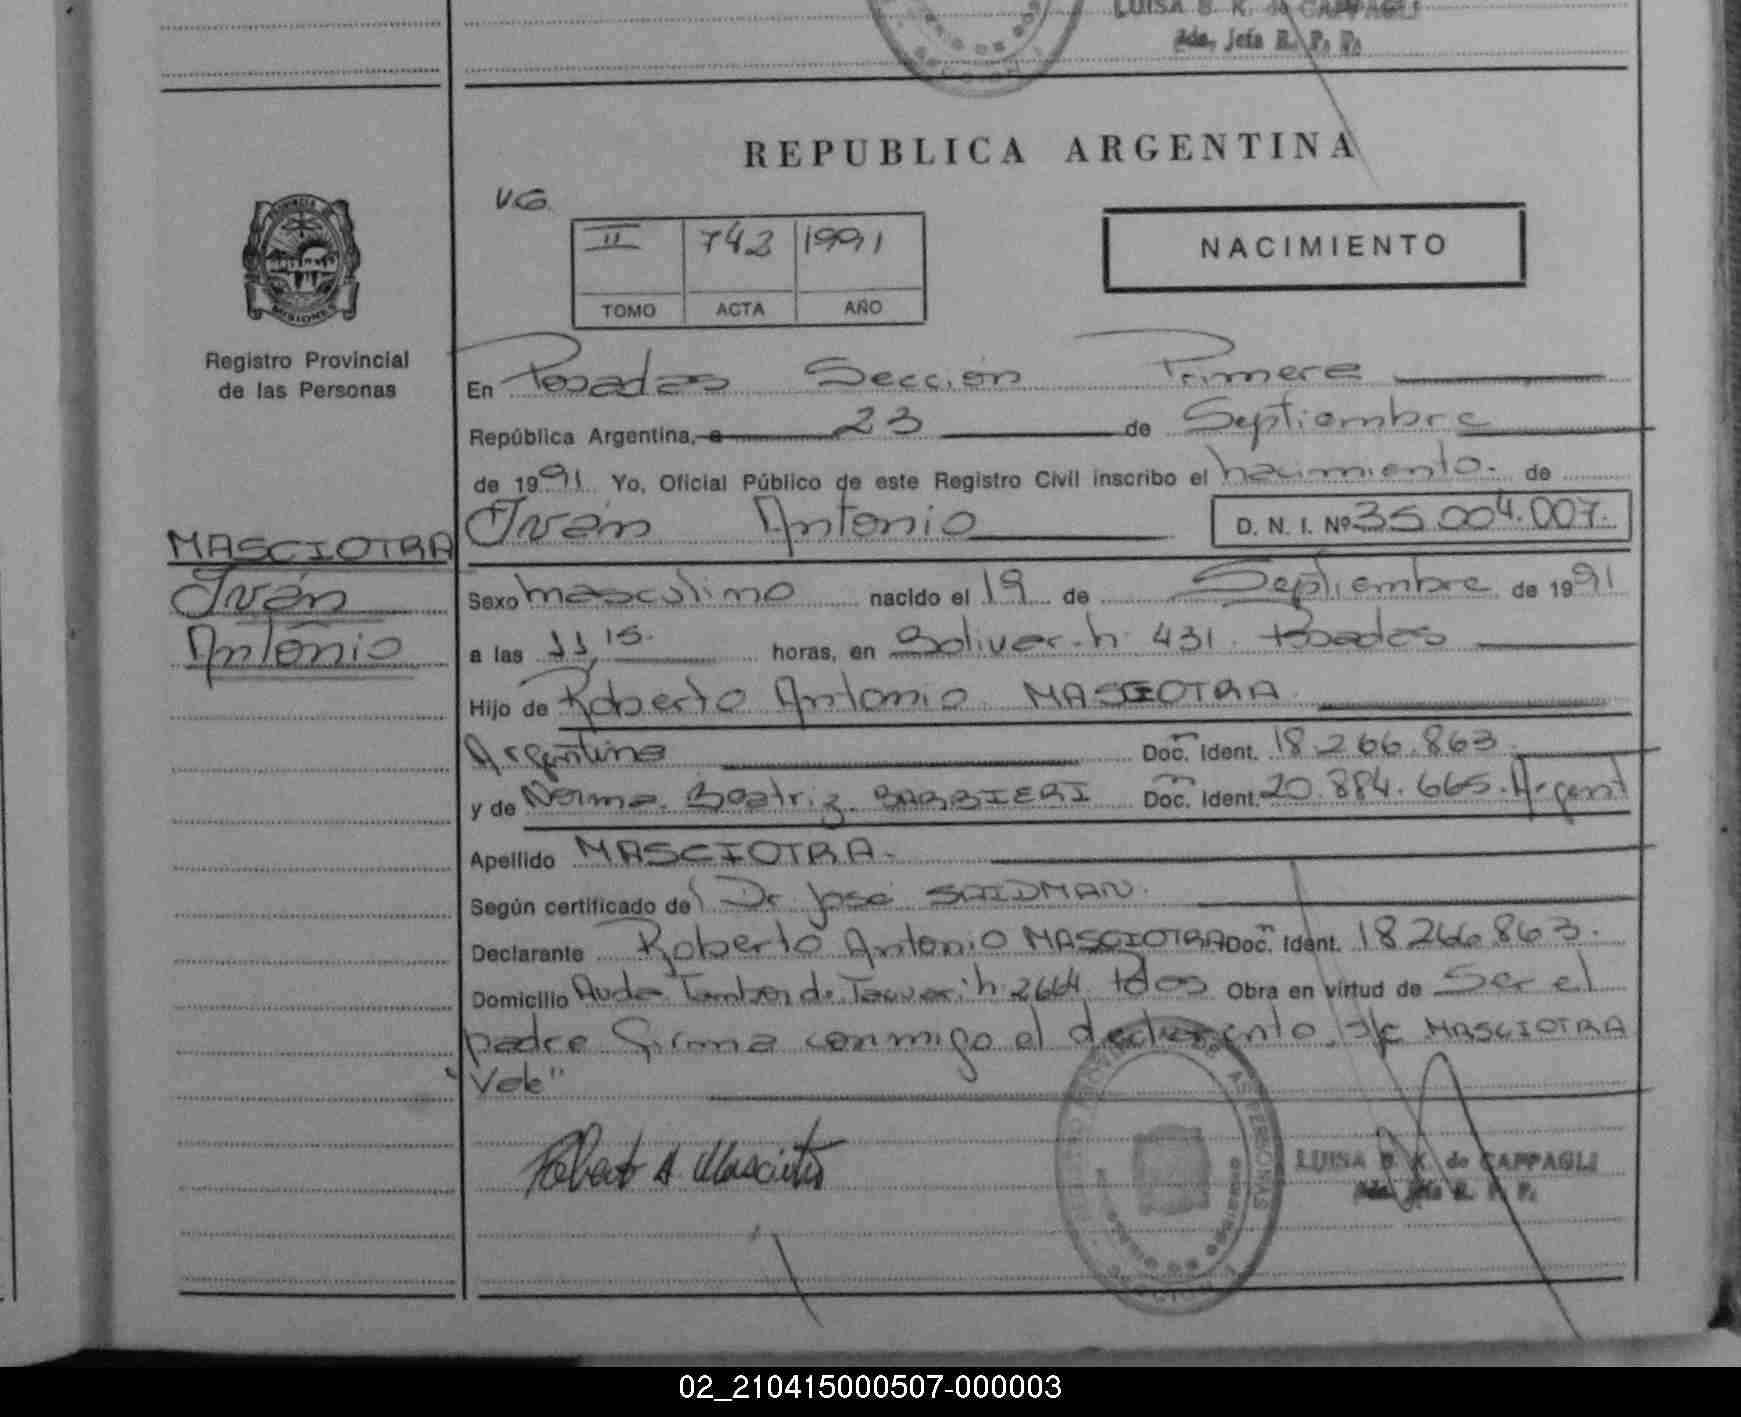 LUISA B. K. de CAPPAGLI
Ada. Jefa R. P. P.
REPUBLICA ARGENTINA
VG
II 742 1991
TOMO ACTA AÑO
NACIMIENTO
PROVINCIA DE
MISIONES
Registro Provincial
de las Personas
En Posadas Sección Primera
República Argentina, a 23 de Septiembre
de 1991 Yo, Oficial Público de este Registro Civil inscribo el nacimiento. de
Iván Antonio D. N. I. Nº 35.004.007.
MASCIOTRA
Iván
Antonio
Sexo masculino nacido el 19 de Septiembre de 1991
a las 11,15. horas, en Bolivar h 431. Posadas
Hijo de Roberto Antonio MASCIOTRA.
Argentina Doc. Ident. 18.266.863.
y de Norma Beatriz BARBIERI Doc. Ident. 20.884.665. Argent
Apellido MASCIOTRA.
Según certificado del Dr José SAIDMAN.
Declarante Roberto Antonio MASCIOTRA Doc. Ident. 18266863.
Domicilio Avda Tambor de Tacuari h 2664 Pdas Obra en virtud de Ser el
padre firma conmigo el declarante, s/r MASCIOTRA
"Vale"
Roberto A. Masciotra
LUISA B. K. de CAPPAGLI
Ada. Jefa R. P. P.
02_210415000507-000003